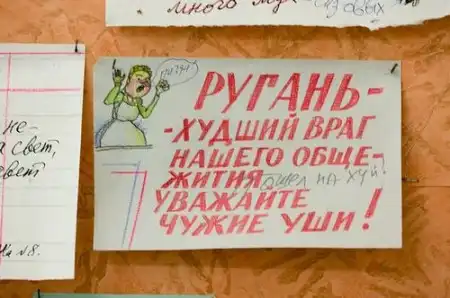 много мух
РУГАНЬ-
-ХУДШИЙ ВРАГ
НАШЕГО ОБЩЕ-
ЖИТИЯ
пошел на хуй!
УВАЖАЙТЕ
ЧУЖИЕ УШИ!
не-
свет,
№8.